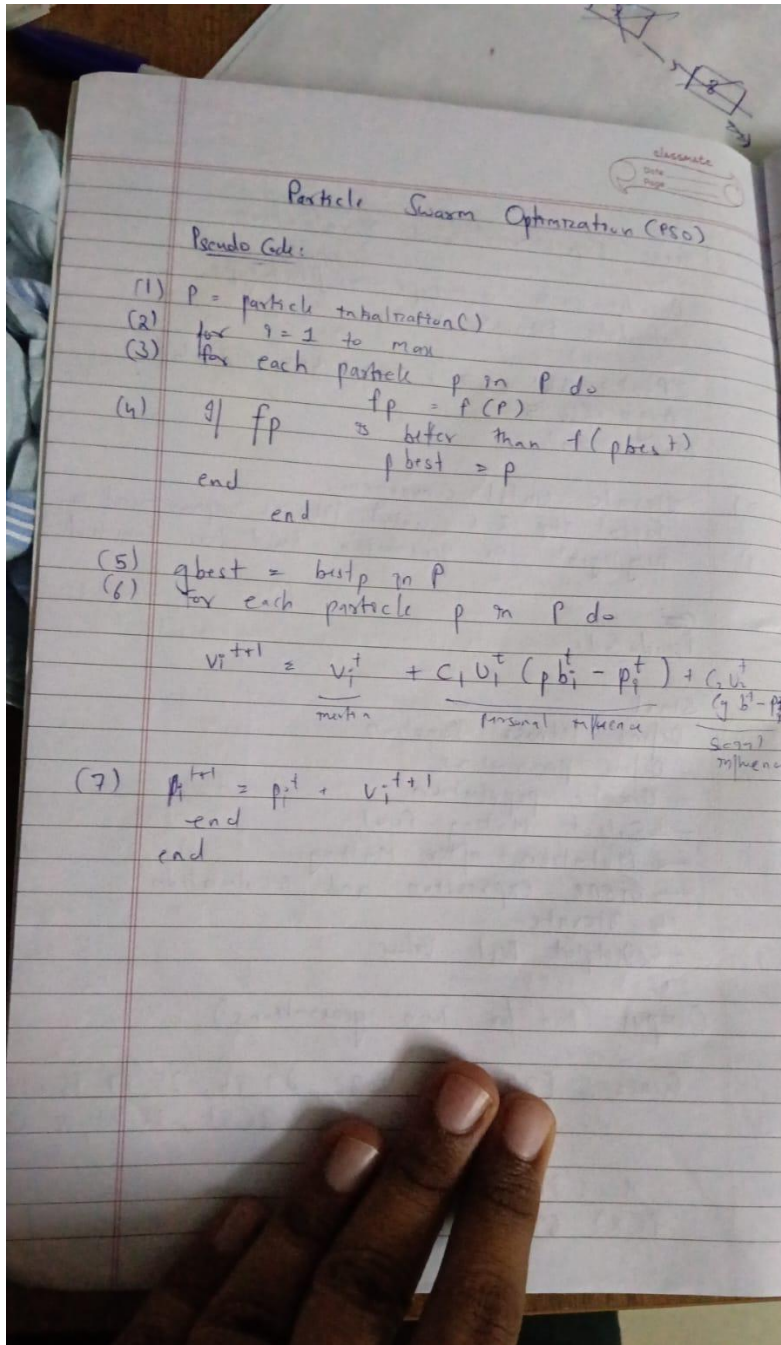 classmate
Date
Page
Particle Swarm Optimization (PSO)
Pseudo Code:
(1) P = particle initialization()
(2) for i = 1 to max
(3) for each particle p in P do
fp = f(P)
(4) If fp is better than f(pbest)
pbest = p
end
end
(5) gbest = best p in P
(6) for each particle p in P do
vi^t+1 = vi^t + C1 Ui^t (pbi^t - pi^t) + C2 Ui^t
(gb^t - pi
inertia personal influence social
influence
(7) pi^t+1 = pi^t + vi^t+1
end
end